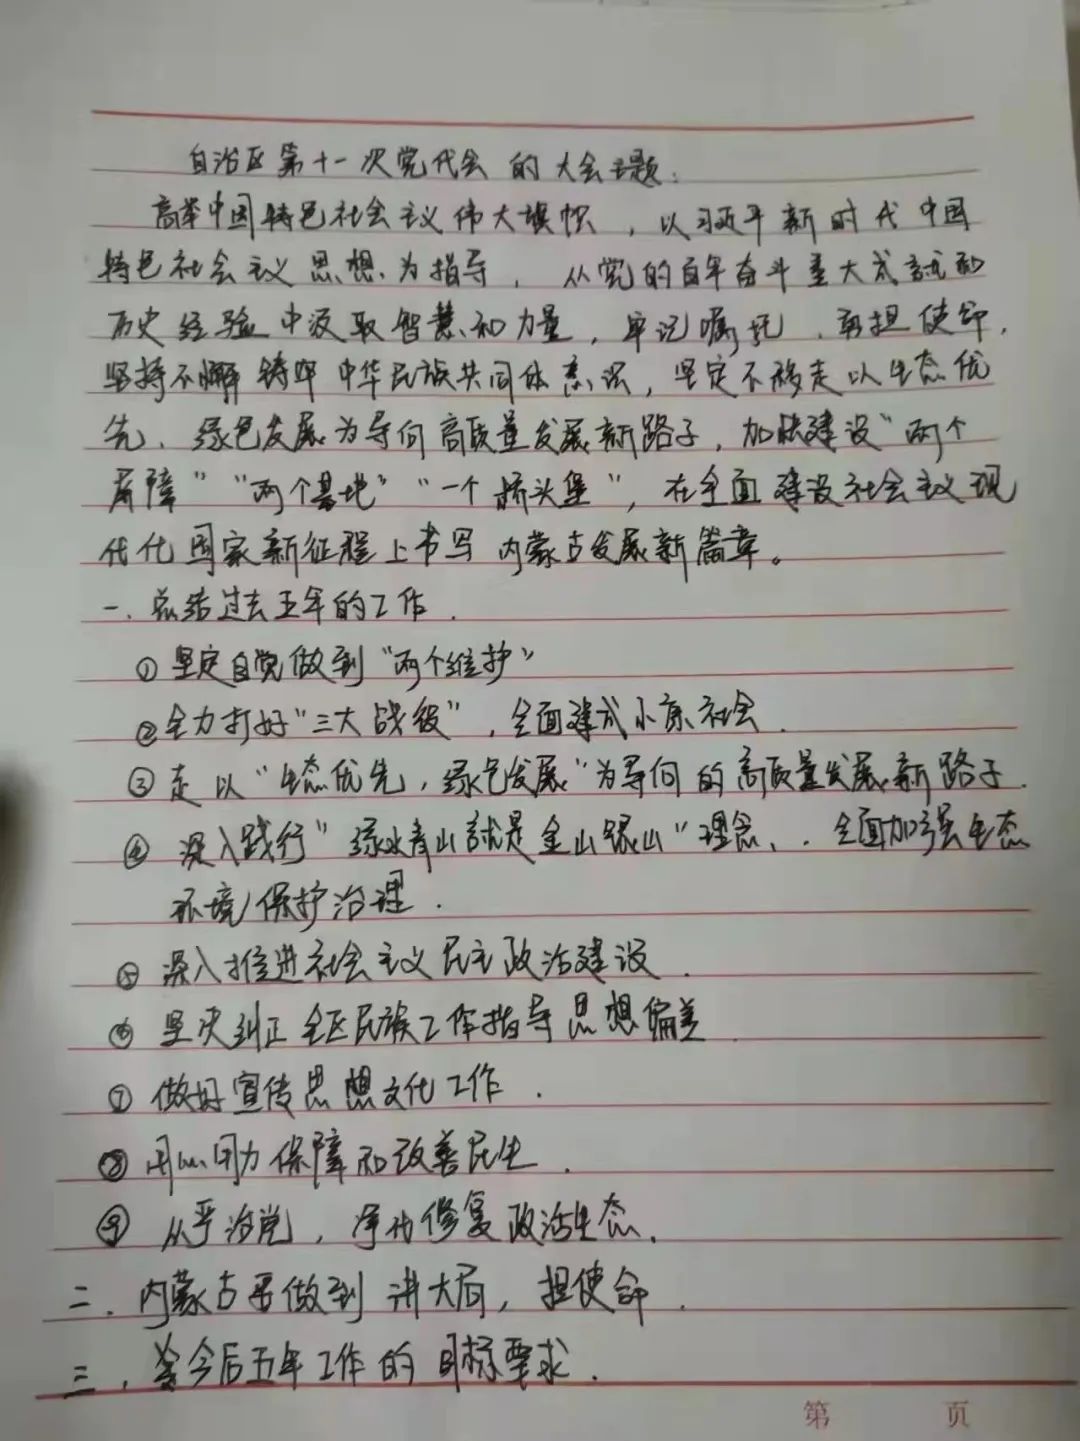 自治区第十一次党代会的大会主题：
高举中国特色社会主义伟大旗帜，以习近平新时代中国
特色社会主义思想为指导，从党的百年奋斗重大成就和
历史经验中汲取智慧和力量，牢记嘱托、勇担使命，
坚持不懈铸牢中华民族共同体意识，坚定不移走以生态优
先、绿色发展为导向高质量发展新路子，加快建设“两个
屏障”“两个基地”“一个桥头堡”，在全面建设社会主义现
代化国家新征程上书写内蒙古发展新篇章。
一.总结过去五年的工作.
①坚定自觉做到“两个维护”
②全力打好“三大战役”，全面建成小康社会.
③走以“生态优先，绿色发展”为导向的高质量发展新路子.
④深入践行“绿水青山就是金山银山”理念、.全面加强生态
环境保护治理.
⑤深入推进社会主义民主政治建设.
⑥坚决纠正全区民族工作指导思想偏差.
⑦做好宣传思想文化工作.
⑧用心用力保障和改善民生.
⑨从严治党，净化修复政治生态.
二.内蒙古要做到讲大局，担使命.
三.今后五年工作的目标要求.
第 页